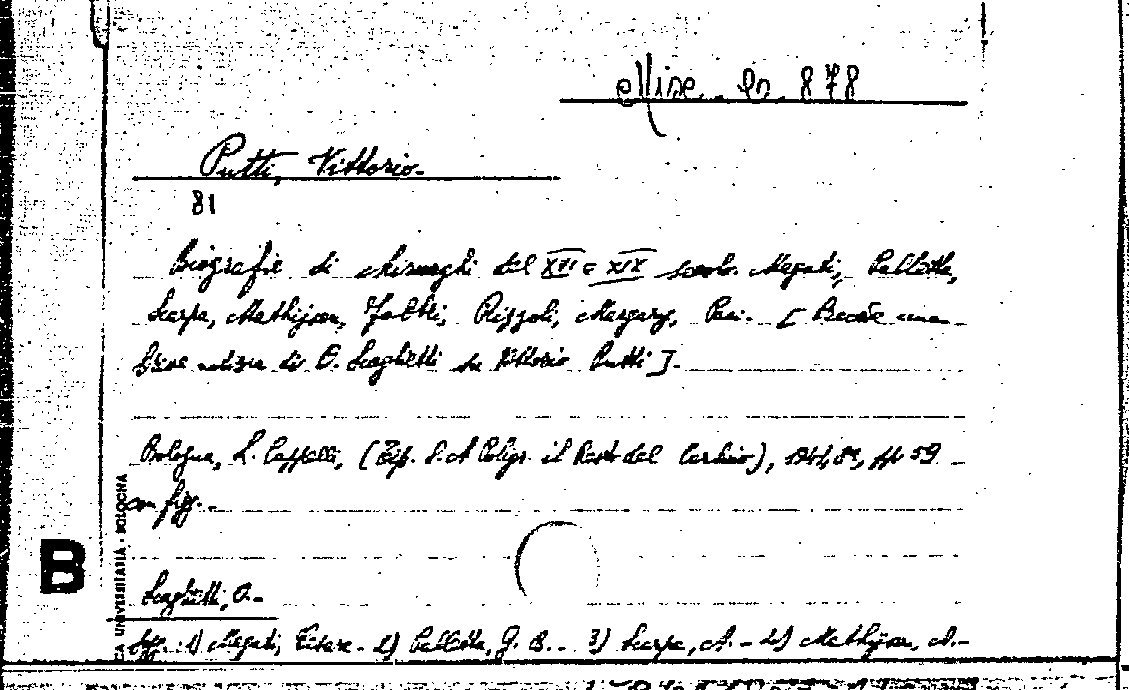 Misc. B. 878
Putti, Vittorio.
81
Biografie di chirurghi del XVI e XIX secolo. Magati, Palletta,
Scarpa, Mathijsen, Fabbri, Rizzoli, Margary, Pasi. - [Precede una
breve notizia di O. Scaglietti su Vittorio Putti].
Bologna, L. Cappelli, (Tip. S. A. Poligr. il Resto del Carlino), 1941, 8º, pp 59
con figg. -
B
CA UNIVERSITARIA - BOLOGNA
Scaglietti, O. -
Sogg. 1) Magati, Cesare - 2) Palletta, G. B. - 3) Scarpa, A. - 4) Mathijsen, A. -